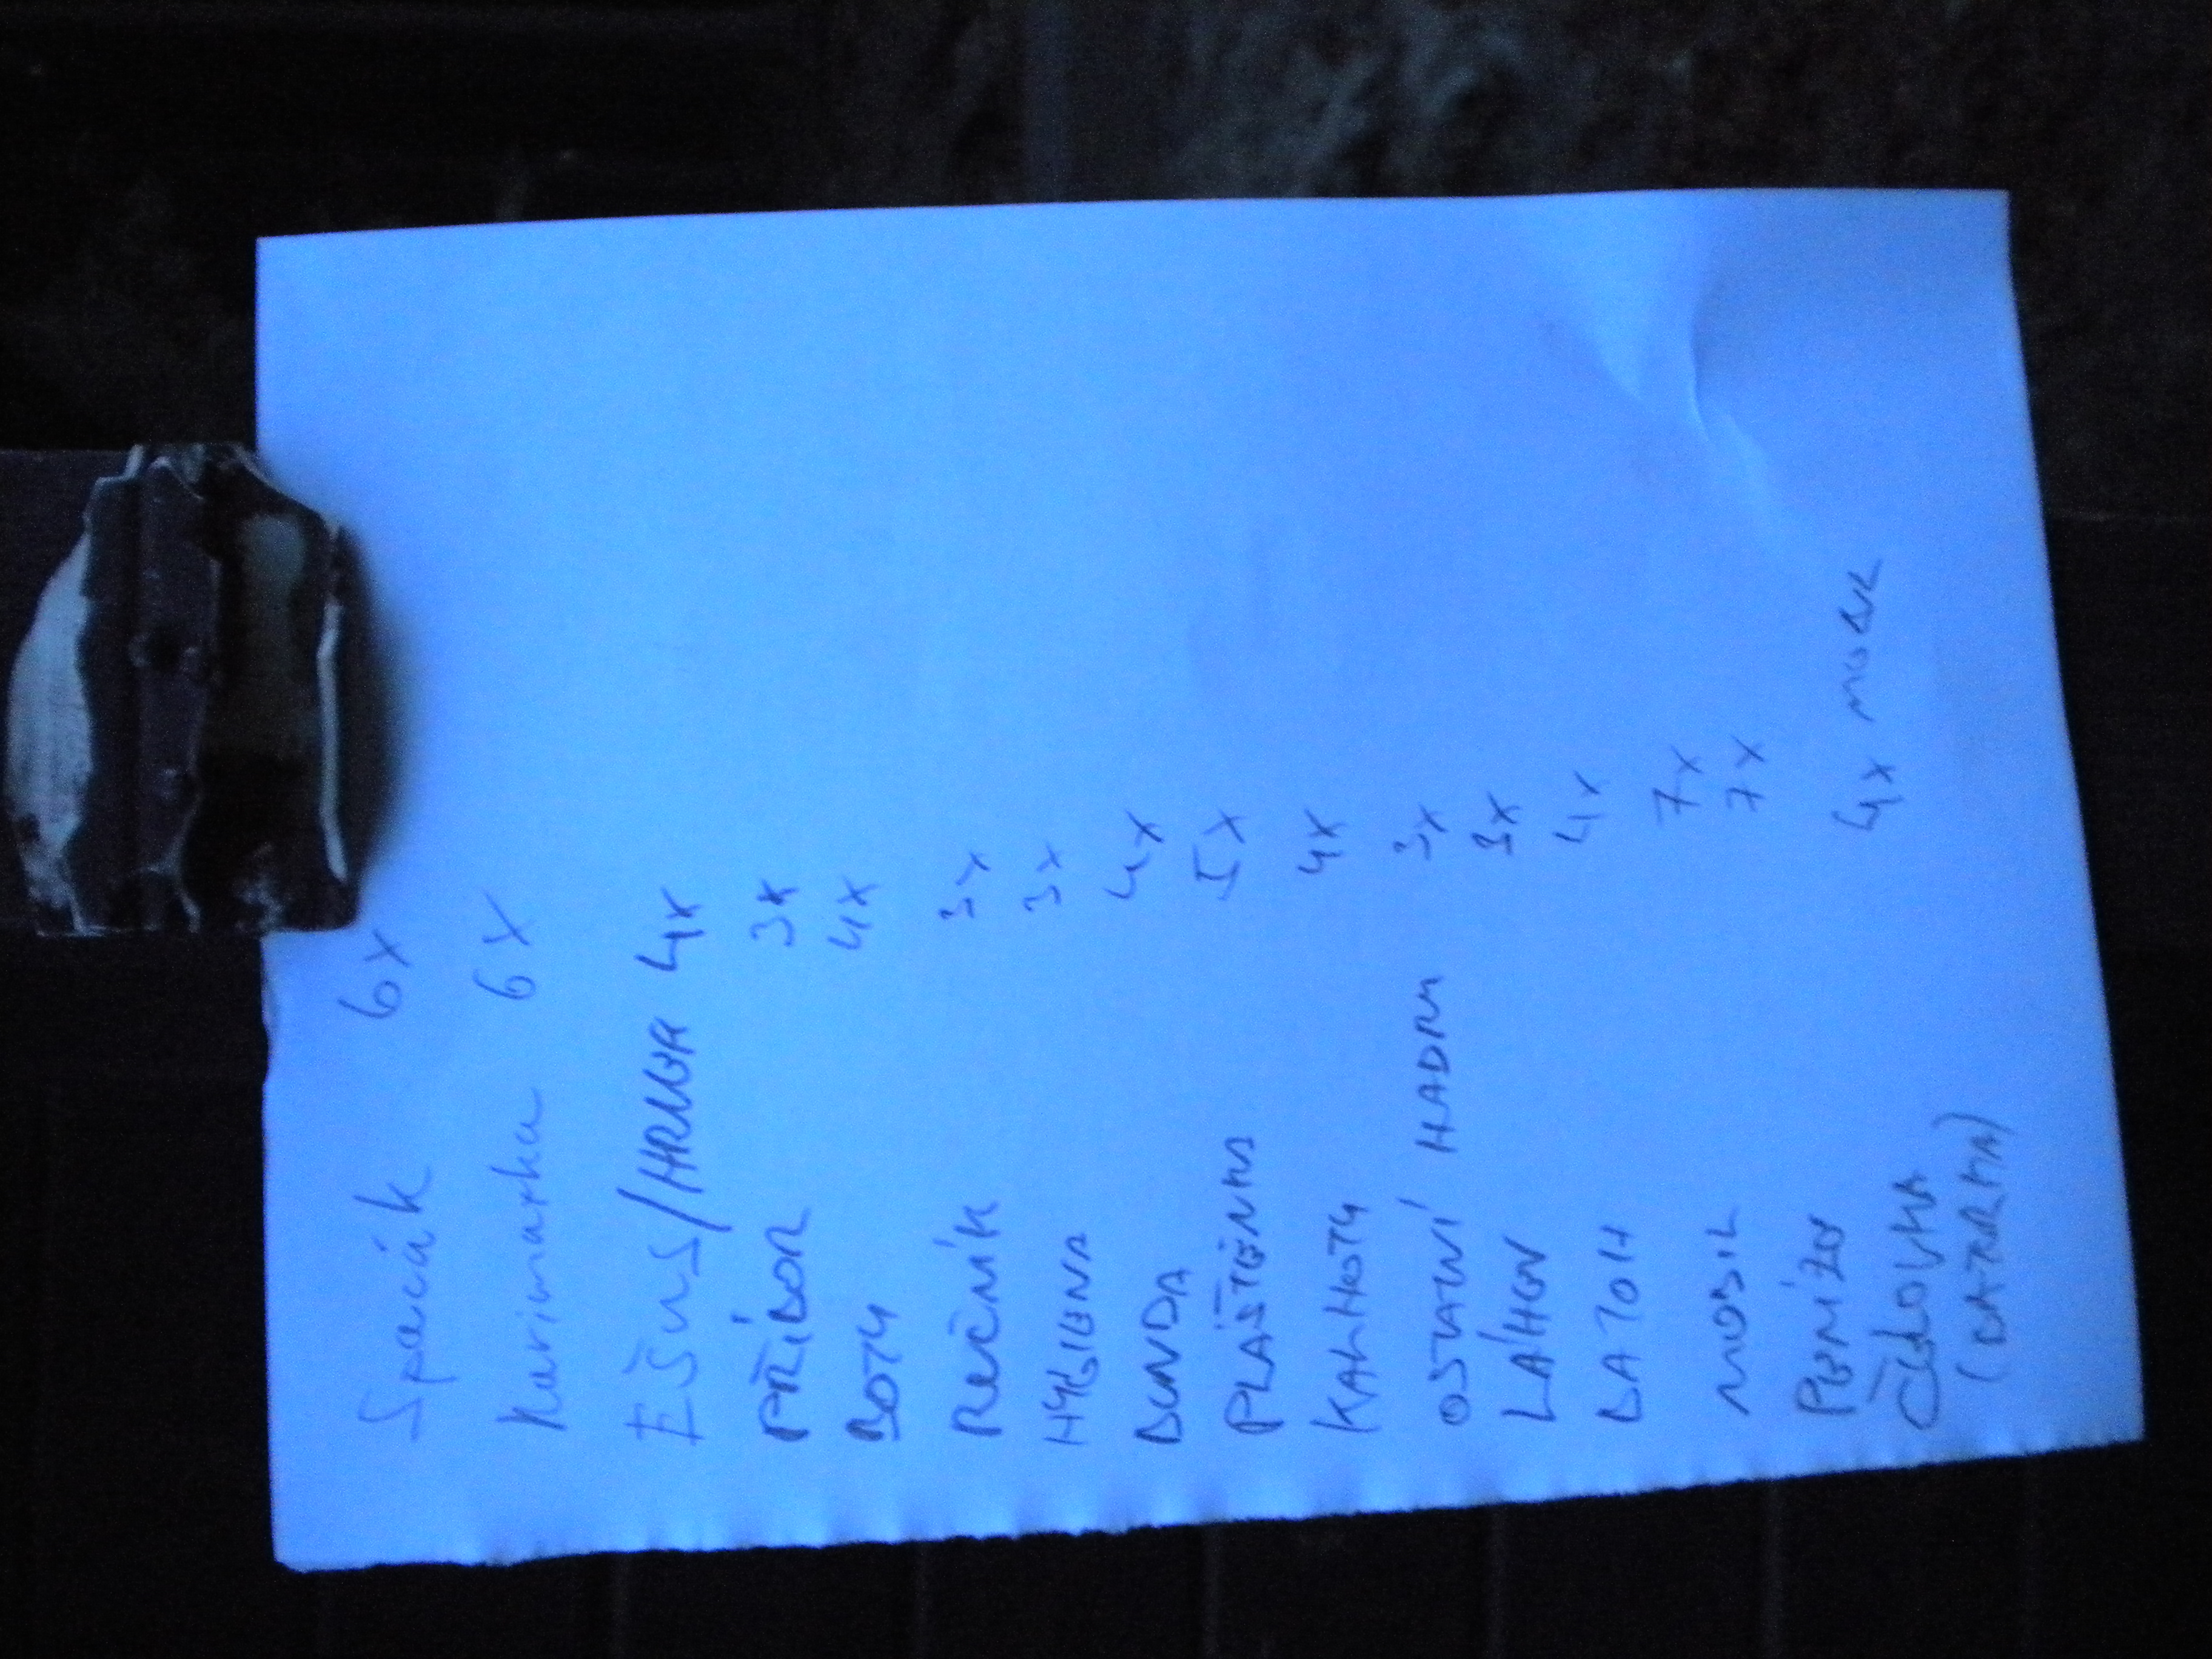 Spacák 6x
Karimatka 6x
EŠUS/HRNEK 4x
PŘÍBOR 3x
BOTY 4x
RUČNÍK 3x
HYGIENA 3x
BUNDA 4x
PLÁŠTĚNKA 5x
KALHOTY 4x
OSTATNÍ HADRY 3x
LÁHEV 3x
BATOH 4x
MOBIL 7x
PENÍZE 7x
ČELOVKA 4x
(BATERKA)